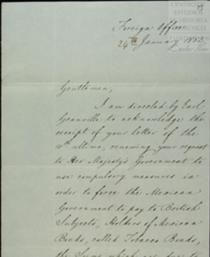 Foreign Office
24th January 1882
Gentlemen,
I am directed by Earl
Granville to acknowledge the
receipt of your letter of the
ultimo, renewing your request
to Her Majesty's Government to
use compulsory measures in
order to force the Mexican
Government to pay to British
Subjects, Holders of Mexican
Bonds, called Tobacco Bonds,
the Sums which are